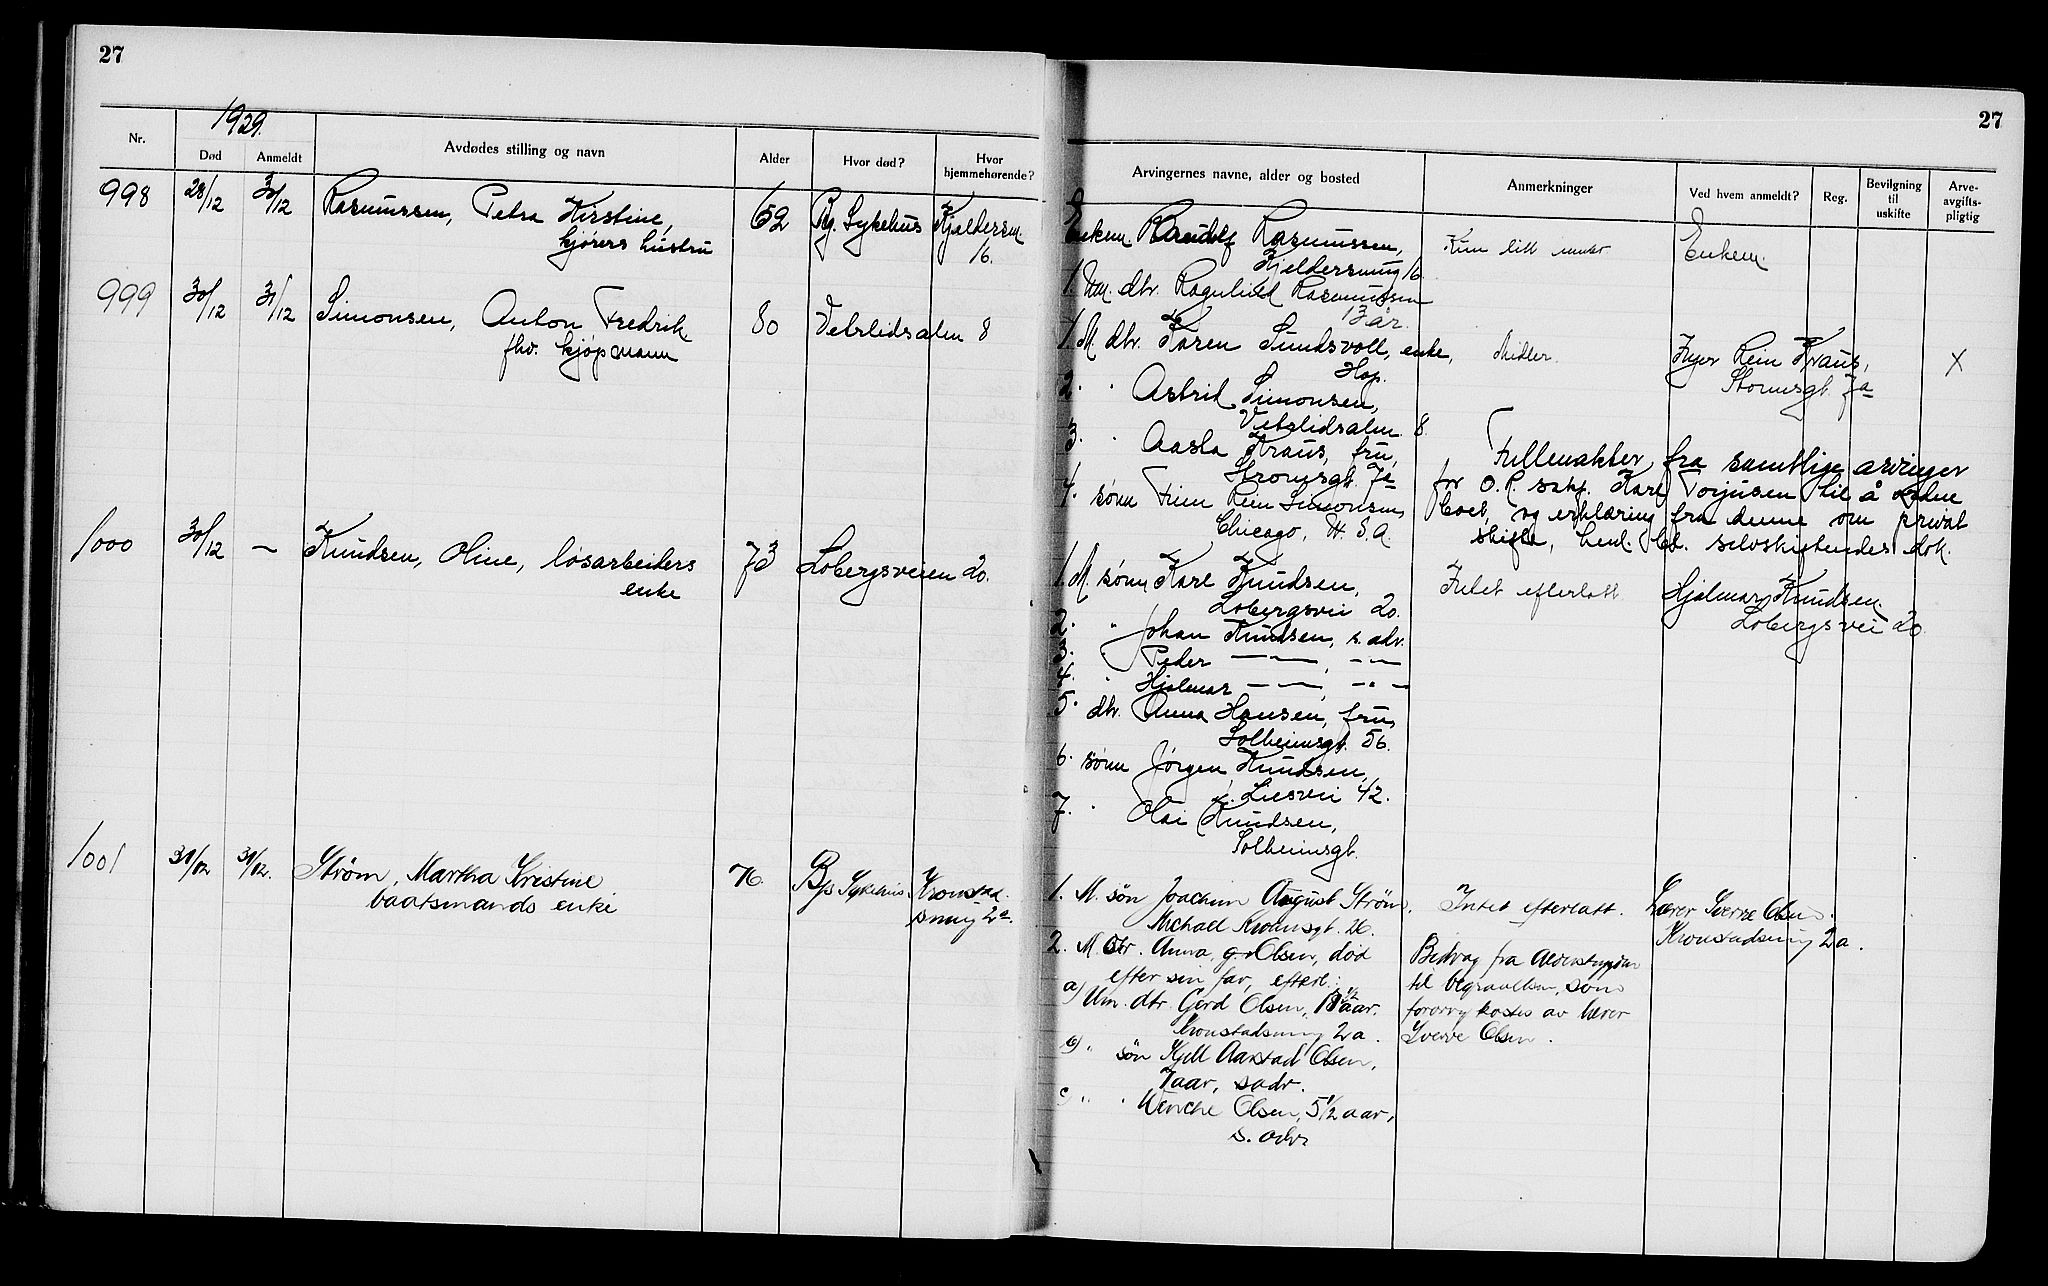 27
1929.
Nr.
Død
Anmeldt
Avdødes stilling og navn
Alder
Hvor død?
Hvor hjemmehørende?
998 28/12 30/12 Rasmussen, Petra Kirstine, 62 Bg. Sykehus Kjeldersm.
kjørers hustru 16.
999 30/12 31/12 Simonsen, Anton Fredrik 80 Vetrlidsalm 8
fhv. kjøpmann
1000 30/12 — Knudsen, Oline, løsarbeiders 73 Løbergsveien 20.
enke
1001 31/12 31/12. Strøm, Martha Kristine 76. Bys Sykehus. Kronstad-
baatsmands enke smug 2a.
27
Arvingernes navne, alder og bosted
Anmerkninger
Ved hvem anmeldt?
Reg.
Bevilgning til uskifte
Arve-avgifts-pligtig
Enkem. Rasmussen, Kun litt innbo Enkem.
Kjeldersmug 16.
1. Um. dtr. Ragnhild Rasmussen
13 år.
1. M. dtr. Karen Sundsvoll, enke, Midler. Inger Rein Kraus,
Hop. Strømsgt. 7a X
2. " Astrid Simonsen,
Vetrlidsalm. 8.
3. " Aasta Kraus, fru, Fullmakter fra samtlige arvinger
Strømsgt. 7a for O.R. sakf. Kare Torjusen til å ordne
4. sønn Finn Rein Simonsen, boet, og erklæring fra denne om privat
Chicago, U.S.A. skifte, henl. bl. selvskiftendes dok.
1. M. sønn Kare Knudsen, Intet efterlatt Hjalmar Knudsen.
Løbergsvei 20. Løbergsvei 20
2. " Johan Knudsen, s. adr.
3. " Peder — , — " —
4. " Hjalmar — , — " —
5. dtr. Anna Hansen, fru,
Solheimsgt. 56.
6. sønn Jørgen Knudsen,
Liesvei 42.
7. " Olai Knudsen,
Solheimsgt.
1. M. søn Joachim August Strøm. Intet efterlatt. Lærer Sverre Olsen.
Michael Krohnsgt. 26. Kronstadsmug 2a.
2. M. dtr. Anna, g. Olsen, død Bidrag fra
efter sin far, efterl.: til begravelsen, som
a) Um. dtr. Gerd Olsen, aar. forøvrig kostes av lærer
Kronstadsmug 2a. Sverre Olsen.
b) " søn Kjell Aarstad Olsen,
7 aar, s adr.
c) " " Wenche Olsen, 5 1/2 aar,
s. adr.